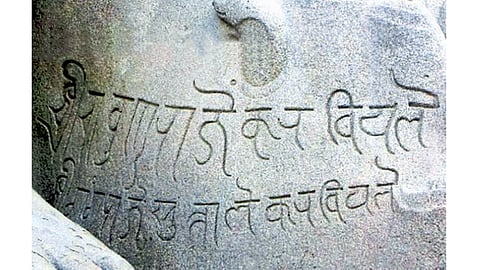 श्रीचावुण्डराजें करवियलें
श्रीगंगराजे सुत्ताले करवियले